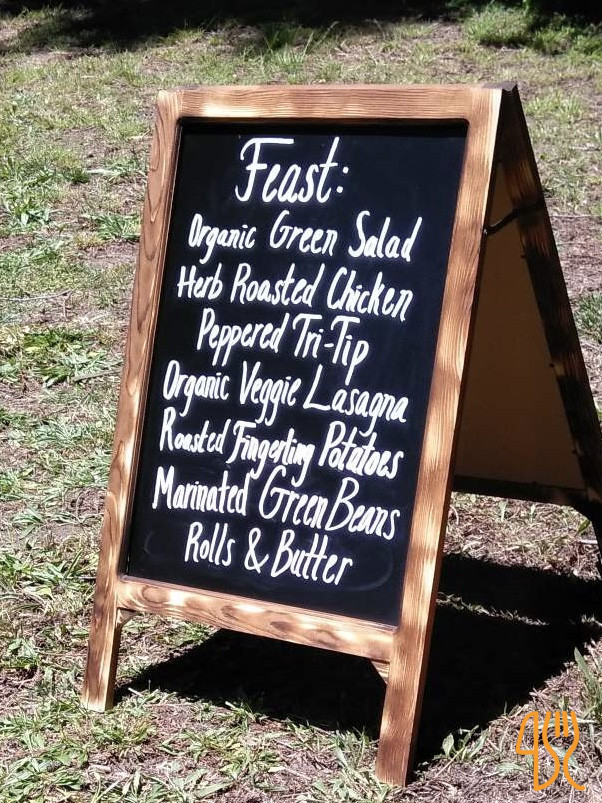 Feast:
Organic Green Salad
Herb Roasted Chicken
Peppered Tri-Tip
Organic Veggie Lasagna
Roasted Fingerling Potatoes
Marinated Green Beans
Rolls & Butter